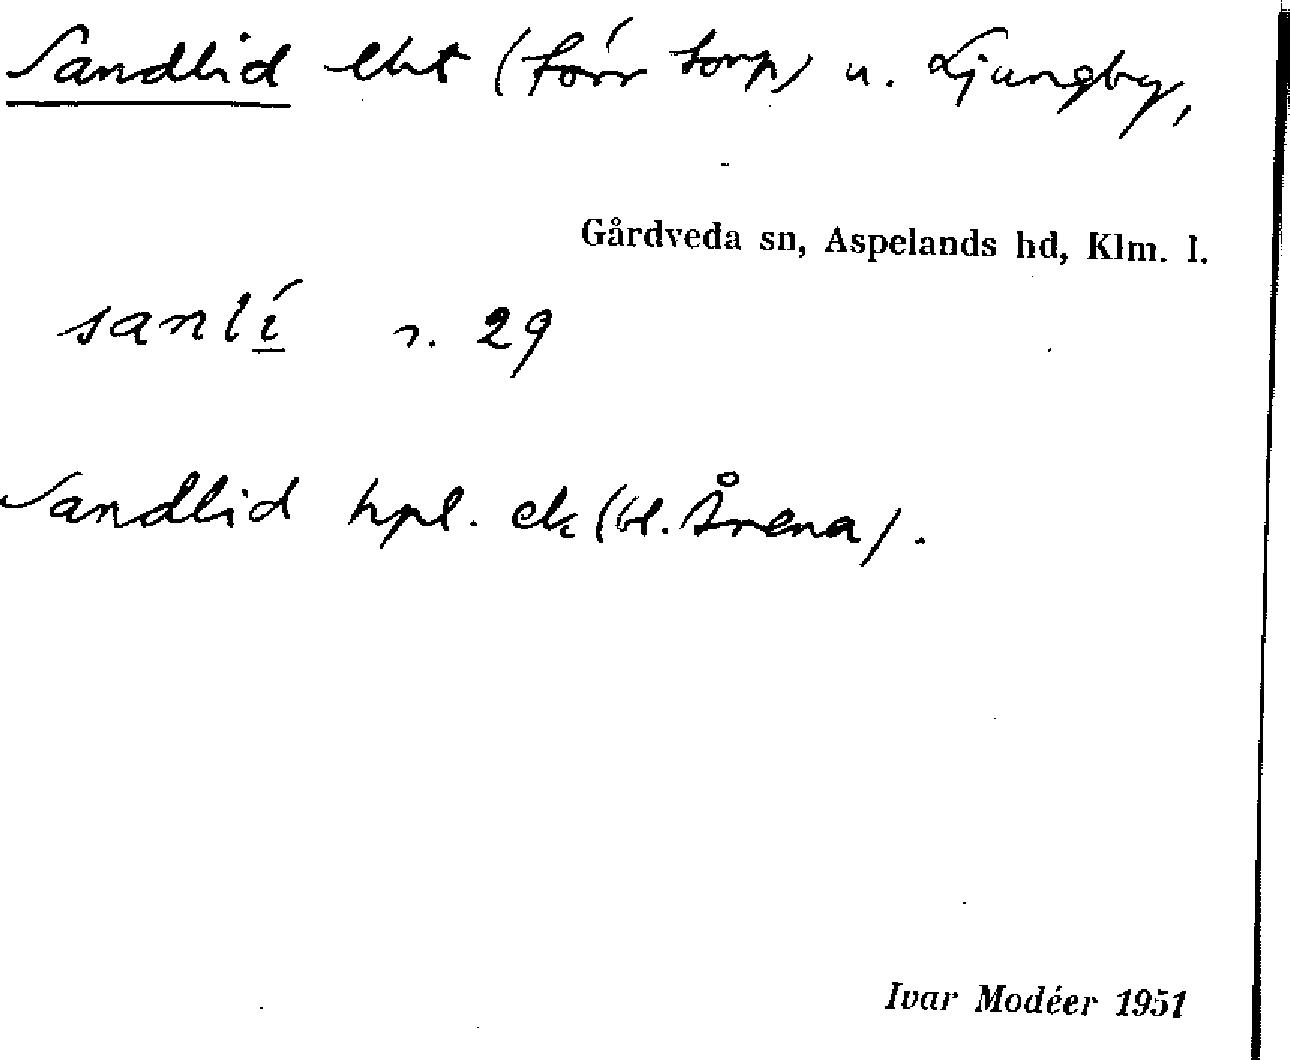 Sandlid lht (förr torp) u. Ljungby,
Gårdveda sn, Aspelands hd, Klm. l.
sanlí r. 29
Sandlid hpl. ek (bl. Årena).
Ivar Modéer 1951